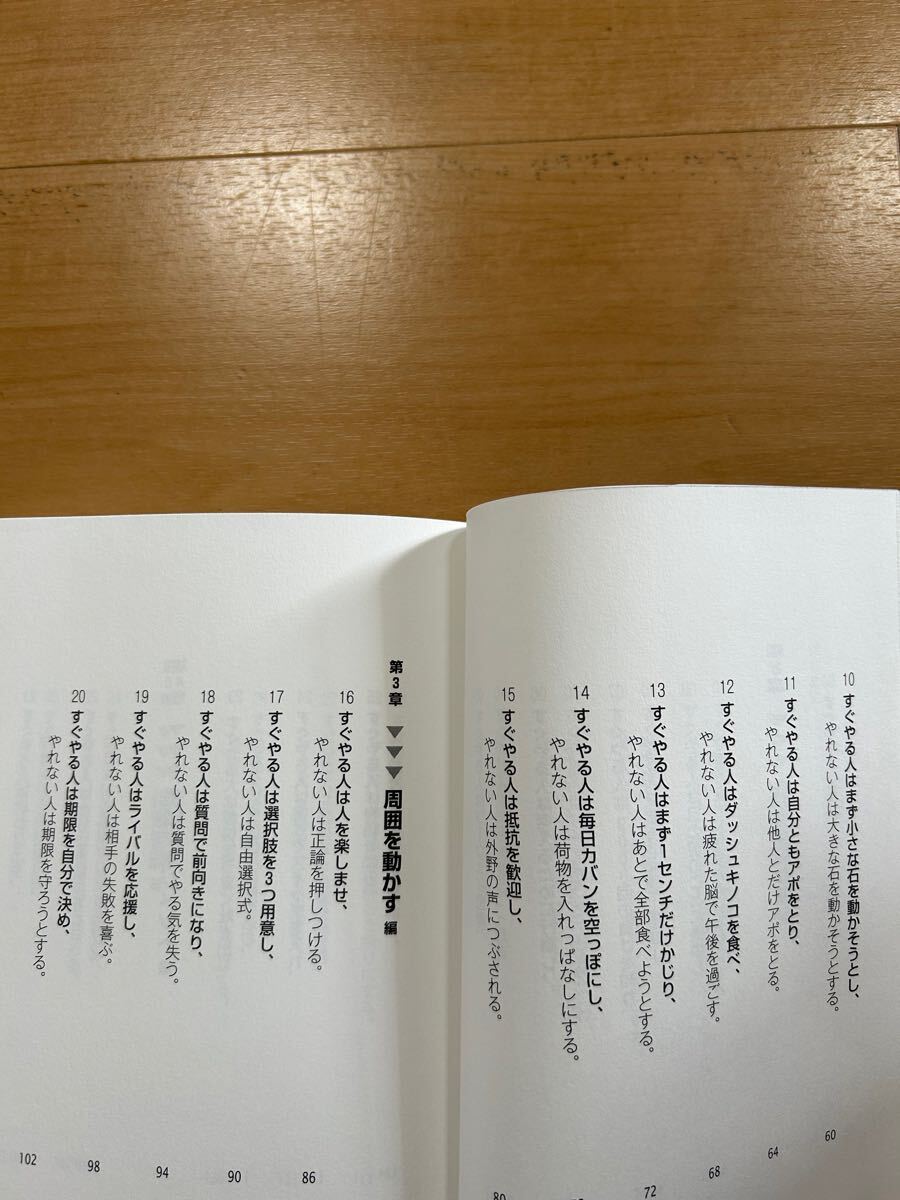 10 すぐやる人はまず小さな石を動かそうとし、
やれない人は大きな石を動かそうとする。
60
11 すぐやる人は自分ともアポをとり、
やれない人は他人とだけアポをとる。
64
12 すぐやる人はダッシュキノコを食べ、
やれない人は疲れた脳で午後を過ごす。
68
13 すぐやる人はまず1センチだけかじり、
やれない人はあとで全部食べようとする。
72
14 すぐやる人は毎日カバンを空っぽにし、
やれない人は荷物を入れっぱなしにする。
15 すぐやる人は抵抗を歓迎し、
やれない人は外野の声につぶされる。
80
第3章 ▼▼▼ 周囲を動かす 編
16 すぐやる人は人を楽しませ、
やれない人は正論を押しつける。
86
17 すぐやる人は選択肢を3つ用意し、
やれない人は自由選択式。
90
18 すぐやる人は質問で前向きになり、
やれない人は質問でやる気を失う。
94
19 すぐやる人はライバルを応援し、
やれない人は相手の失敗を喜ぶ。
98
20 すぐやる人は期限を自分で決め、
やれない人は期限を守ろうとする。
102